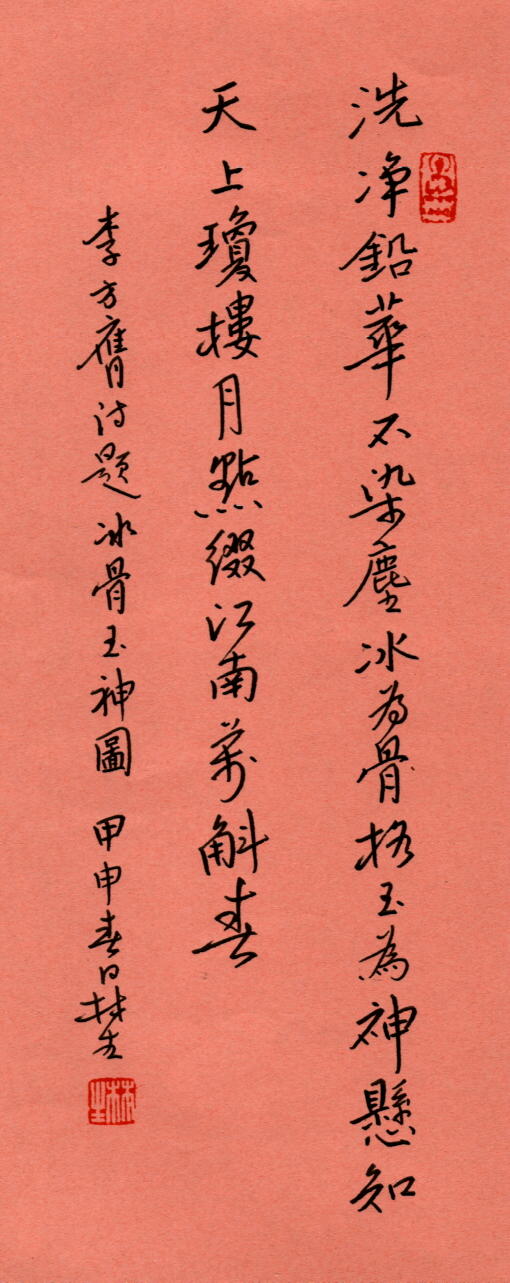 洗淨鉛華不染塵冰為骨格玉為神懸知
天上瓊樓月點綴江南萬斛春
李方膺詩題冰骨玉神圖 甲申春日林生
林生